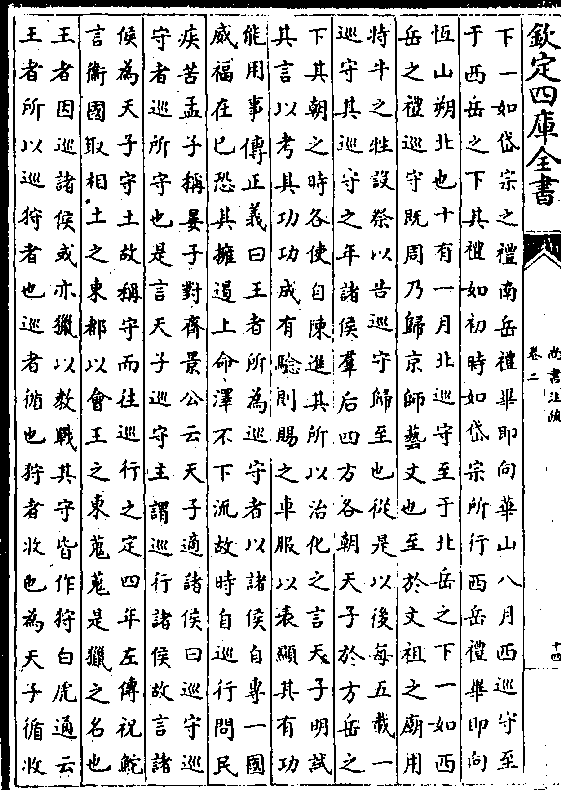 欽定四庫全書
尚書注疏
卷二
十四
下一如岱宗之禮南岳禮畢即向華山八月西巡守至
于西岳之下其禮如初時如岱宗所行西岳禮畢即向
恆山朔北也十有一月北巡守至于北岳之下一如西
岳之禮巡守既周乃歸京師藝文也至於文祖之廟用
特牛之牲設祭以告巡守歸至也從是以後每五載一
巡守其巡守之年諸侯羣后四方各朝天子於方岳之
下其朝之時各使自陳進其所以治化之言天子明試
其言以考其功功成有驗則賜之車服以表顯其有功
能用事傳正義曰王者所為巡守者以諸侯自專一國
威福在已恐其擁遏上命澤不下流故時自巡行問民
疾苦孟子稱晏子對齊景公云天子適諸侯曰巡守巡
守者巡所守也是言天子巡守主謂巡行諸侯故言諸
侯為天子守土故稱守而往巡行之定四年左傳祝鮀
言衛國取相土之東都以會王之東蒐蒐是獵之名也
王者因巡諸侯或亦獵以教戰其守皆作狩白虎通云
王者所以巡狩者也巡者循也狩者收也為天子循收